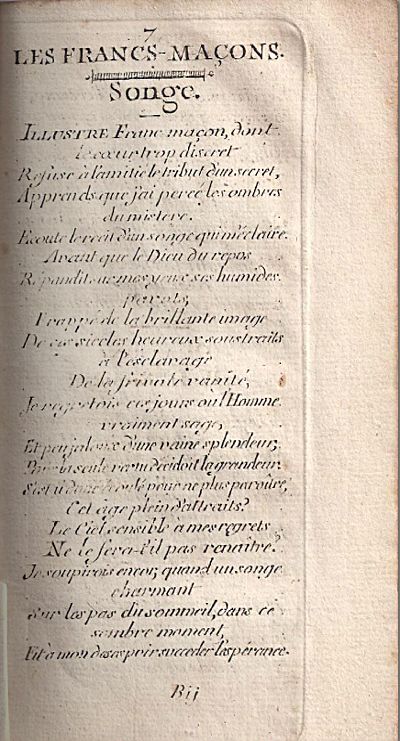 7
LES FRANCS-MAÇONS.
Songe.
ILLUSTRE Franc-maçon, dont
le cœur trop discret
Refuse à l'amitie le tribut d'un secret,
Apprends que j'ai percé les ombres
du mistere.
Ecoute le récit d'un songe qui m'éclaire.
Avant que le Dieu du repos
Répandit sur mes yeux ses humides
pavots,
Frappé de la brillante image
De ces siecles heureux soustraits
à l'esclavage
De la frivole vanité,
Je regretois ces jours où l'Homme
vraiment sage,
Et peu jaloux d'une vaine splendeur,
Par la seule vertu décidoit la grandeur.
S'est-il donc écoulé pour ne plus paroître,
Cet âge plein d'attraits?
Le Ciel sensible à mes regrets
Ne le fera-t'il pas renaître?
Je soupirois encor, quand un songe
charmant
Sur les pas du sommeil, dans ce
sombre moment,
Fit à mon desespoir succeder l'espérance.
Bij